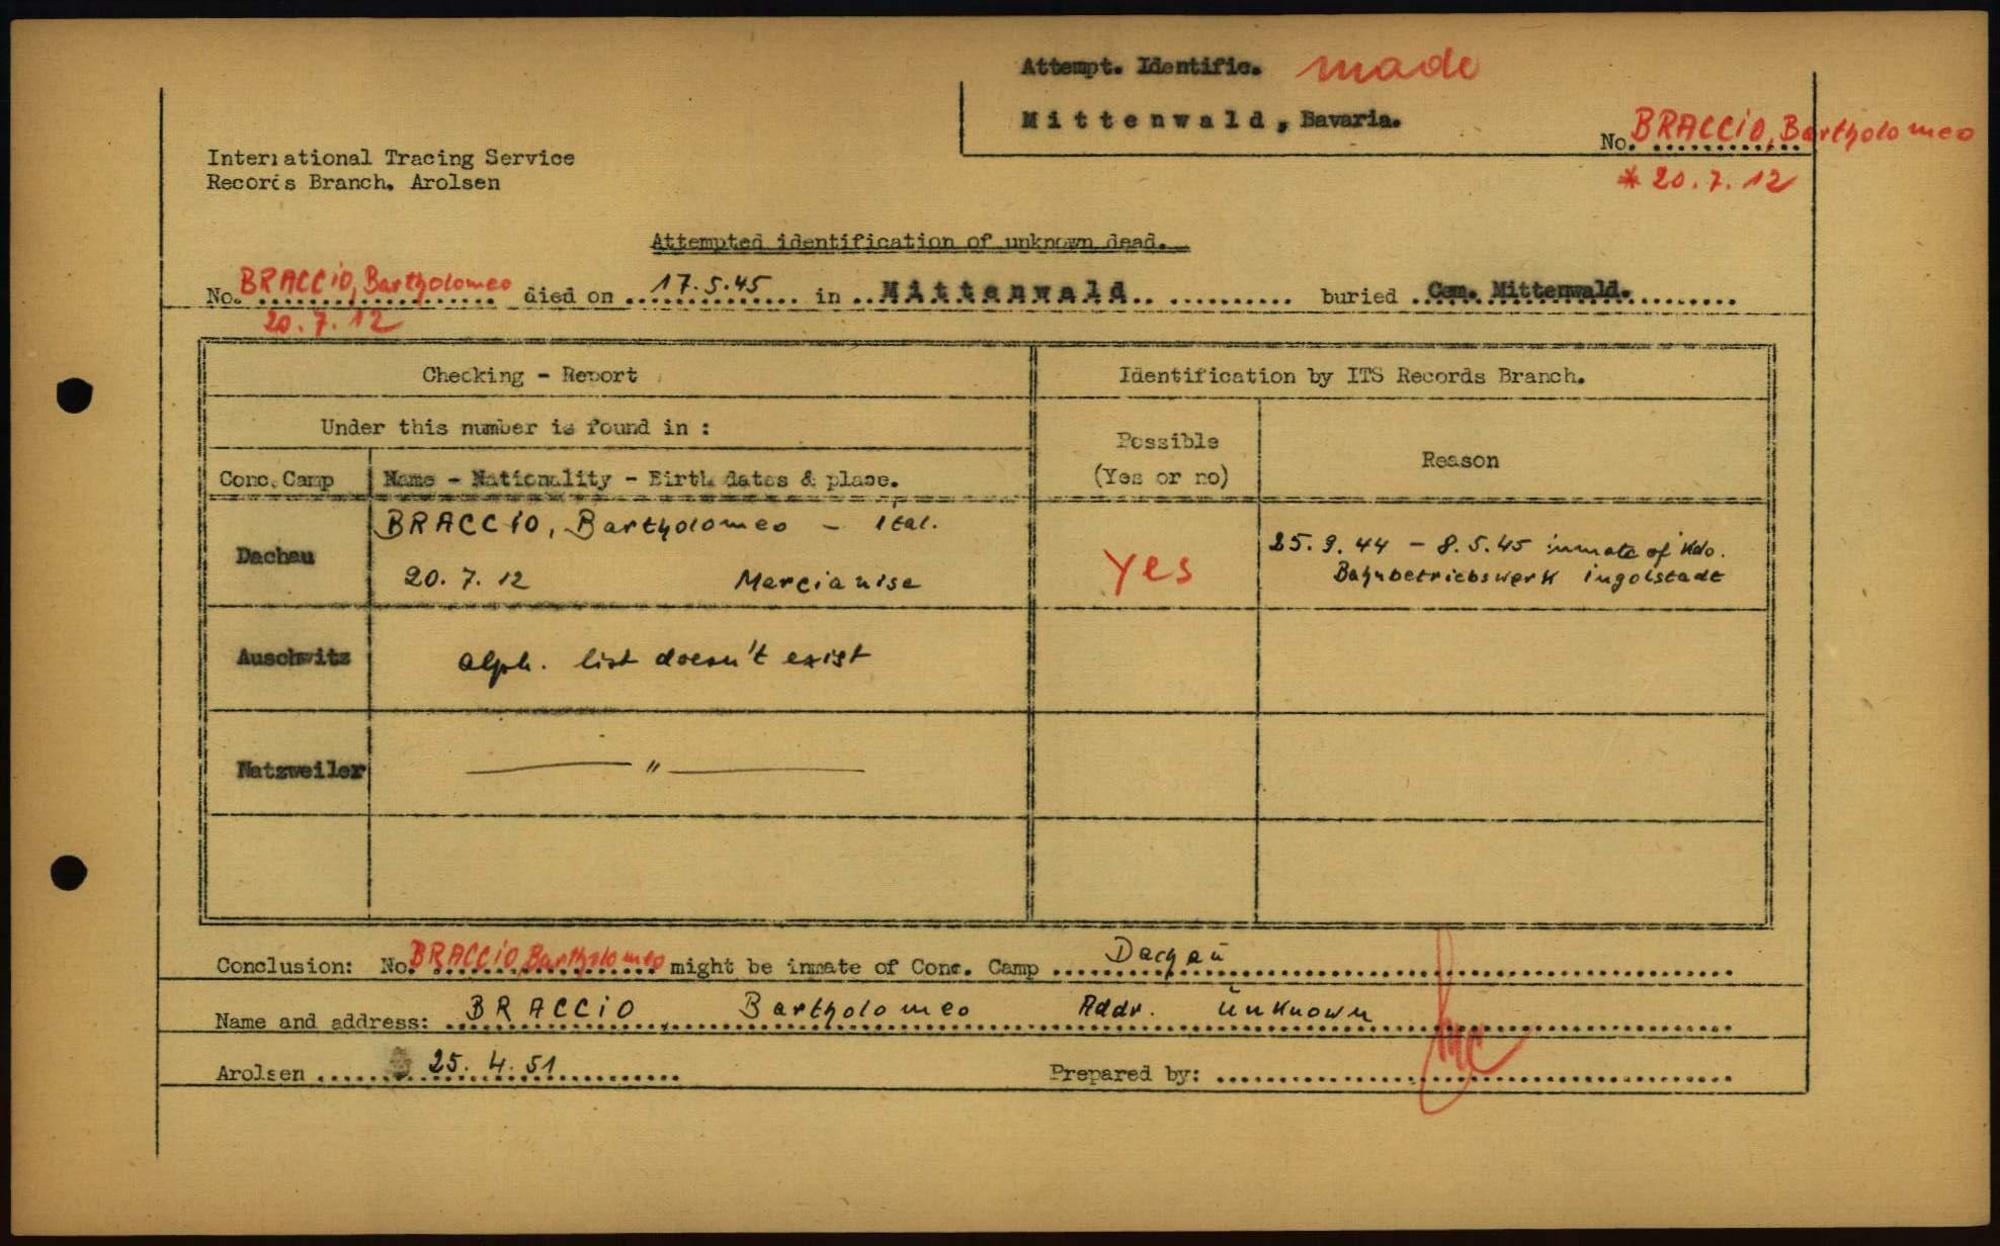 Attempt. Identific. made
Mittenwald, Bavaria.
No. BRACCIO, Bartholomeo
* 20.7.12
International Tracing Service
Records Branch. Arolsen
Attempted identification of unknown dead.
No. BRACCIO, Bartholomeo died on 17.5.45 in Mittenwald buried Cem. Mittenwald.
20.7.12
Checking - Report
Identification by ITS Records Branch.
Under this number is found in :
Possible
(Yes or no)
Reason
Conc. Camp
Name - Nationality - Birth dates & place.
Dachau
BRACCIO, Bartholomeo - ital.
20.7.12 Marcianise
Yes
25.9.44 - 8.5.45 inmate of Kdo.
Bahnbetriebswerk ingolstadt
Auschwitz
alph. list doesn't exist
Natzweiler
— " —
Conclusion: No. BRACCIO, Bartholomeo might be inmate of Conc. Camp Dachau
Name and address: BRACCIO, Bartholomeo Addr. unknown
Arolsen 25.4.51
Prepared by: